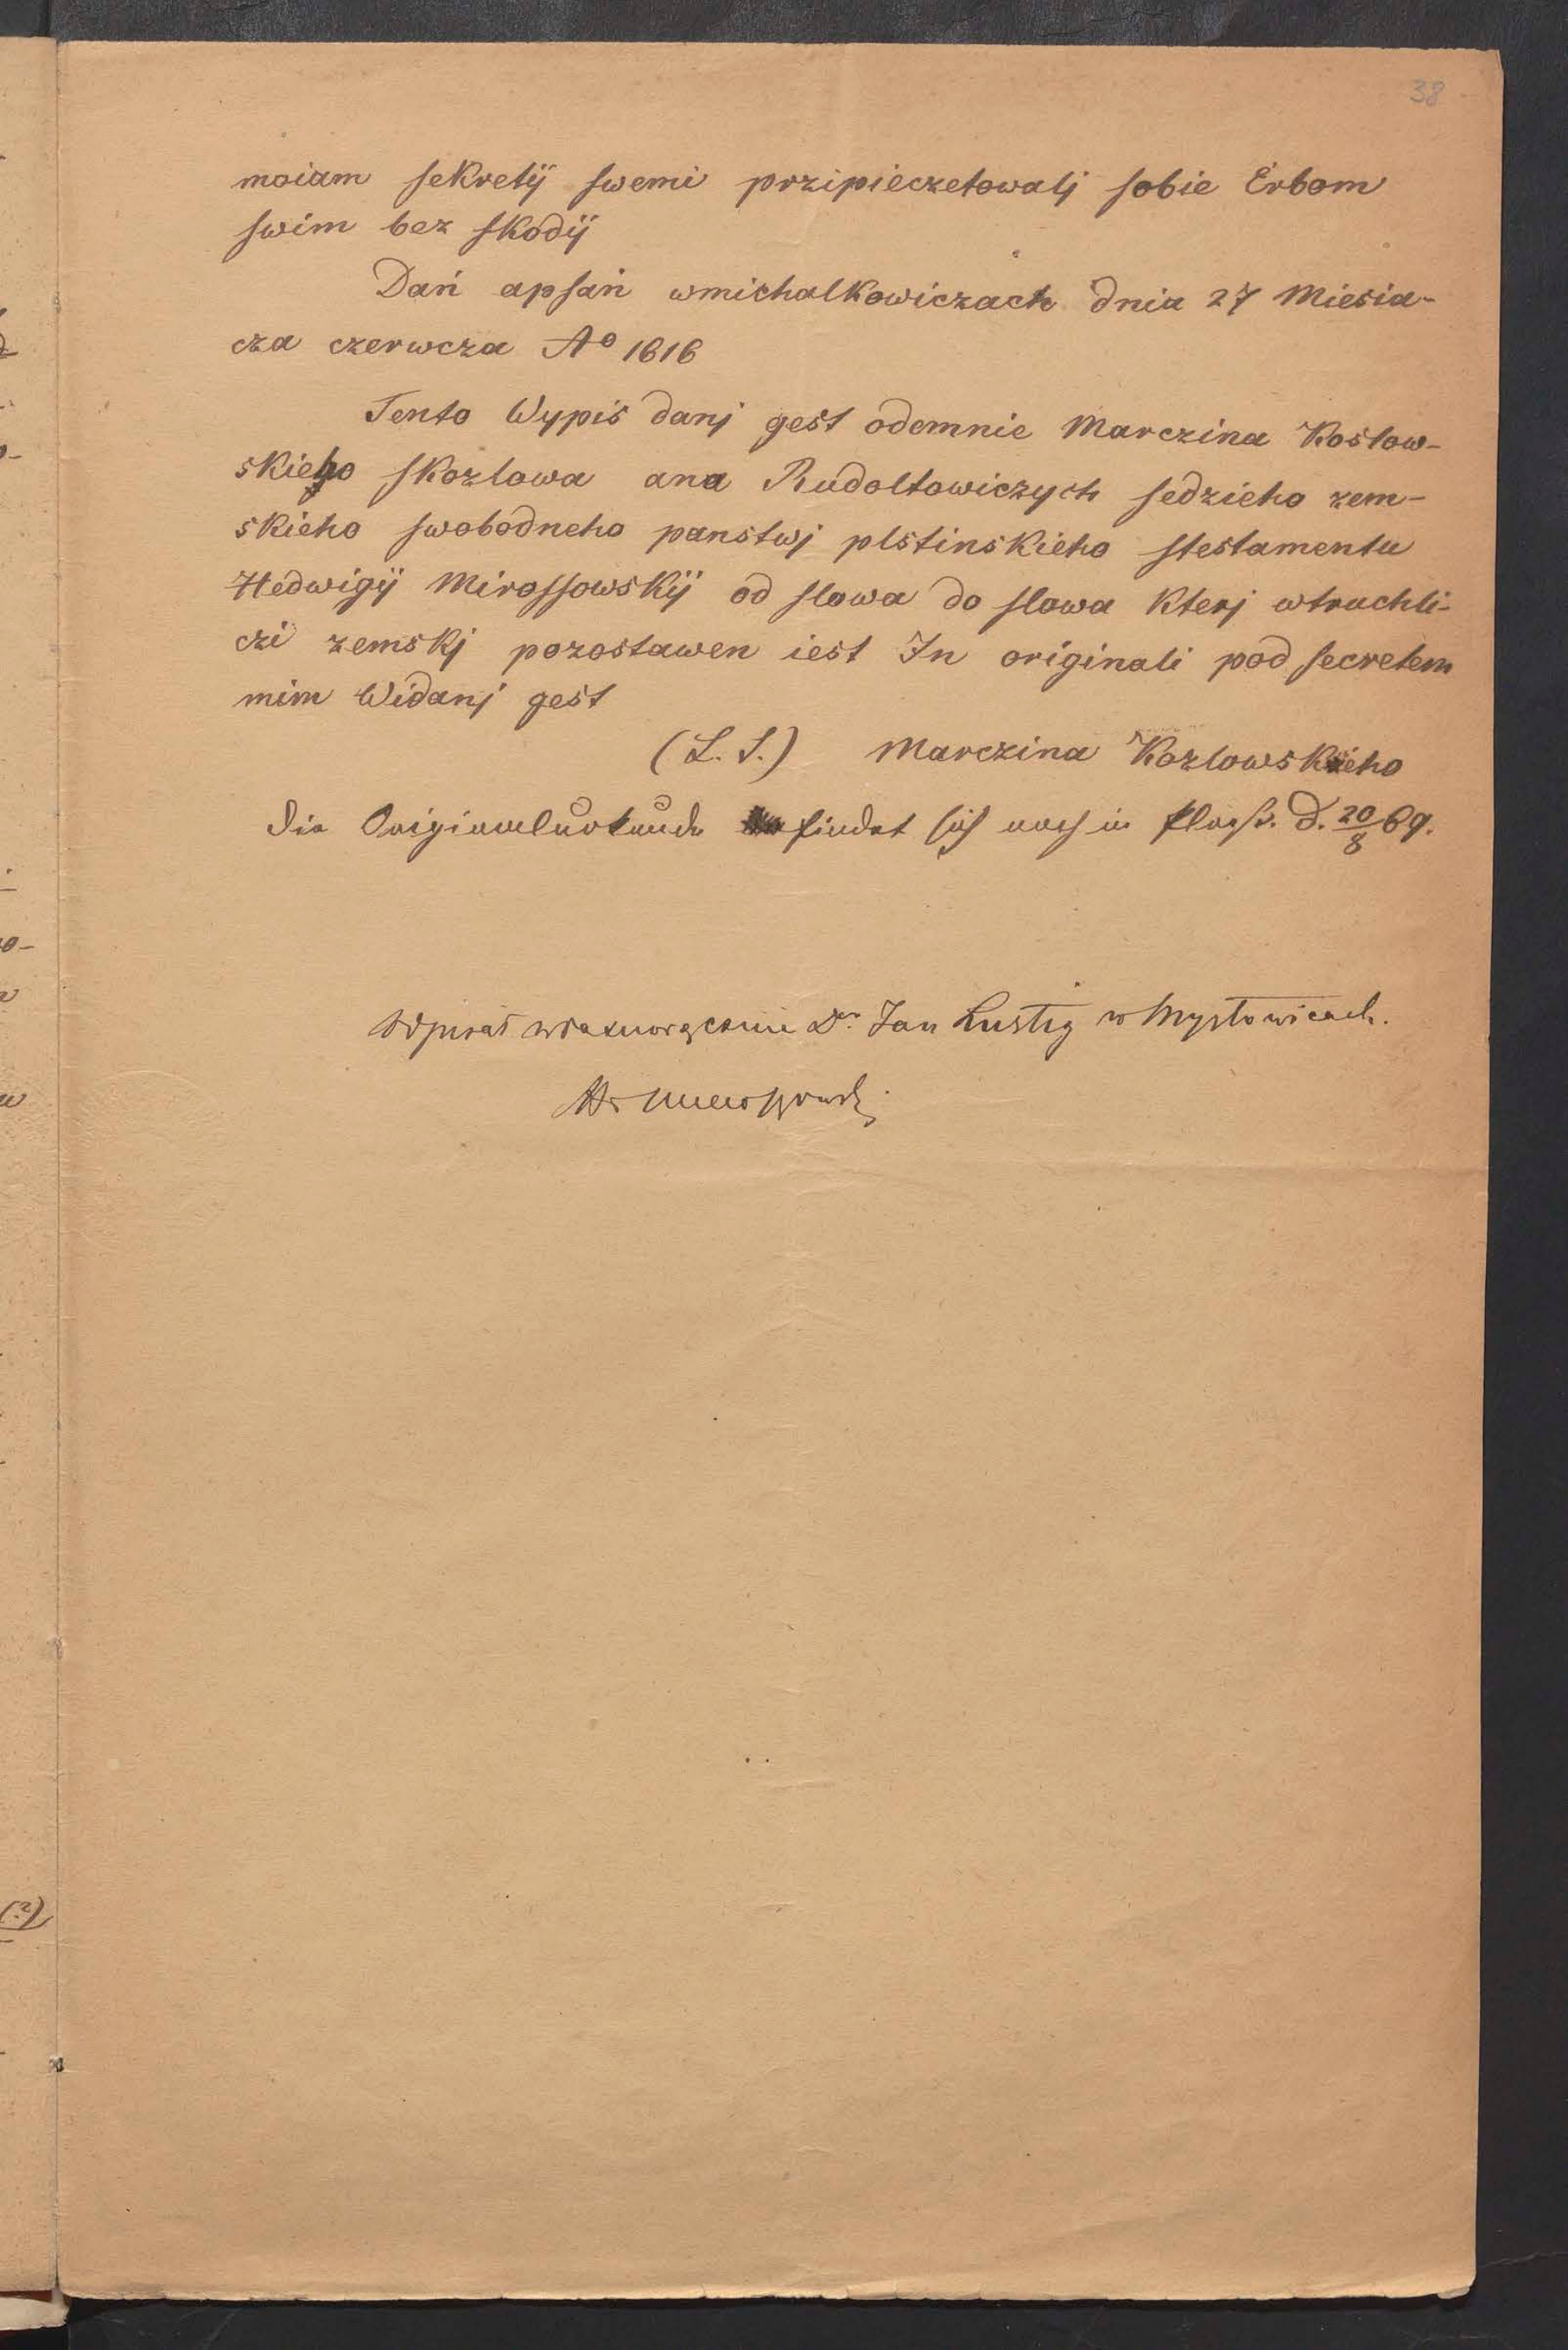 38
moiam sekretÿ swemi przipieczetowalj sobie Erbom
swim bez skodÿ
Dań apsań wmichalkowiczach dnia 27 Miesia-
cza czerwcza Ao 1616
Tento Wypis danj gest odemnie Marczina Koslow-
skieho skozlowa ana Rudoltowiczych sedzieho zem-
skieho swobodneho panstwj plstinskieho stestamentu
Hedwigÿ Mirossowskÿ od slowa do slowa kterj wtruchli-
czi zemskj pozostawen iest In originali pod secretem
mim Widanj gest
(L. S.) Marczina Kozlowskieho
Die Originalurkunde findet sich noch in d. 20/8 69.
Odpisał własnoręcznie Dr. Jan Lustig w Mysłowicach.